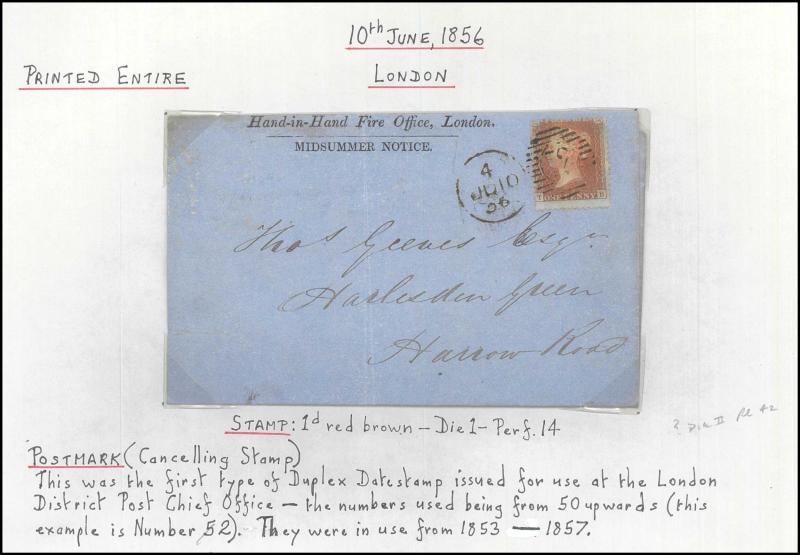 10th June, 1856
Printed Entire
London
Hand-in-Hand Fire Office, London.
MIDSUMMER NOTICE.
4
JU 10
56
52
T ONE PENNY B
Thos Geeves Esqr
Harlesden Green
Harrow Road
Stamp: 1d red brown – Die 1 – Perf. 14
? Die II pl 42
Postmark (Cancelling Stamp)
This was the first type of Duplex Datestamp issued for use at the London
District Post Chief Office – the numbers used being from 50 upwards (this
example is Number 52). They were in use from 1853 – 1857.